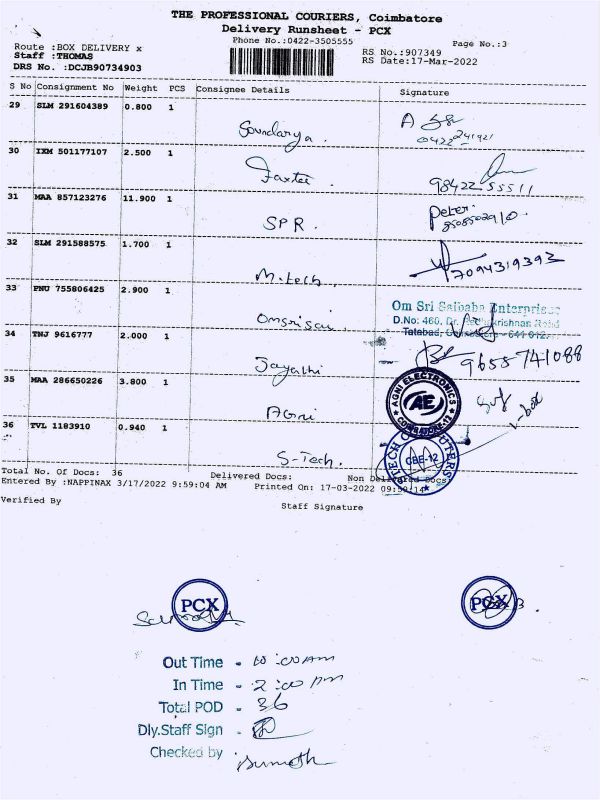 THE PROFESSIONAL COURIERS, Coimbatore
Delivery Runsheet - PCX
Phone No.:0422-3505555
Page No.:3
Route :BOX DELIVERY x
Staff :THOMAS
DRS No. :DCJB90734903
RS No.:907349
RS Date:17-Mar-2022
S No Consignment No Weight PCS Consignee Details Signature
29 SLM 291604389 0.800 1
Soundarya.
0422 241921
30 IXM 501177107 2.500 1
98422 55511
31 MAA 857123276 11.900 1
SPR.
Peter
8508502910.
32 SLM 291588575 1.700 1
M.tech.
7094319393
33 PNU 755806425 2.900 1
Omsrisai.
Om Sri Saibaba Enterprises
D.No: 460, Dr. Radhakrishnan Road
Tatabad, Coimbatore - 641 012.
34 TNJ 9616777 2.000 1
Jayathi
9655741088
35 MAA 286650226 3.800 1
Agni
AGNI ELECTRONICS
AE
COIMBATORE-12
36 TVL 1183910 0.940 1
S-Tech.
TECH COMPUTERS
CBE-12
Total No. Of Docs: 36 Delivered Docs: Non Delivered Docs:
Entered By :NAPPINAX 3/17/2022 9:59:04 AM Printed On: 17-03-2022 09:59:14
Verified By Staff Signature
PCX
PCX
Out Time - 10:00 AM
In Time - 2:00 PM
Total POD - 36
Dly.Staff Sign -
Checked by